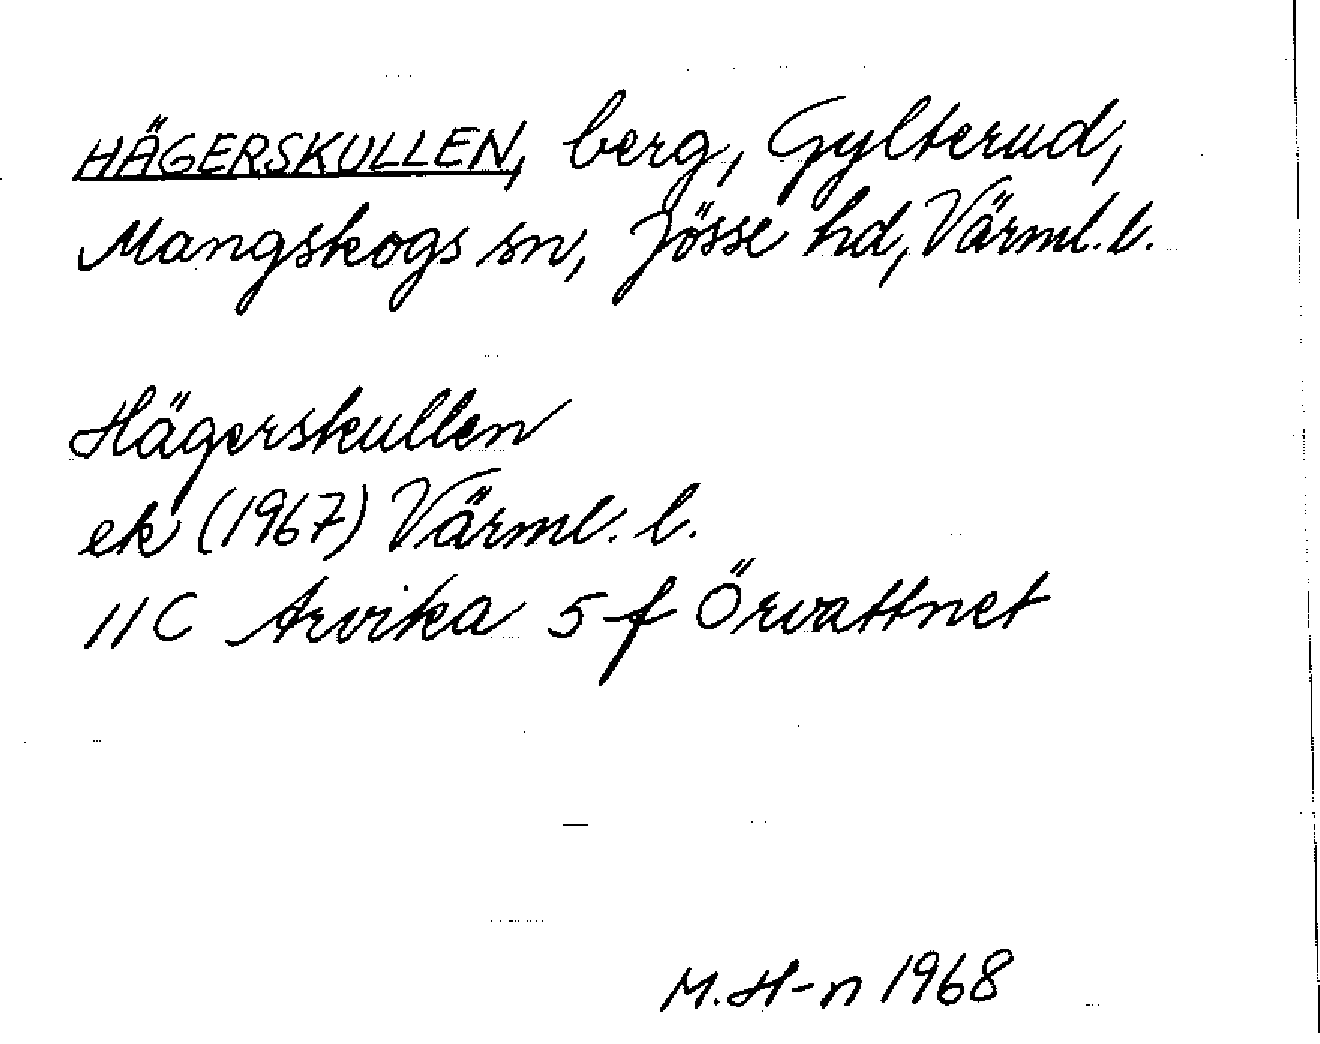 HÄGERSKULLEN, berg, Gylterud,
Mangskogs sn, Jösse hd, Värml. l.
Hägerskullen
ek (1967) Värml. l.
11C Arvika 5 f Örvattnet
M. H-n 1968